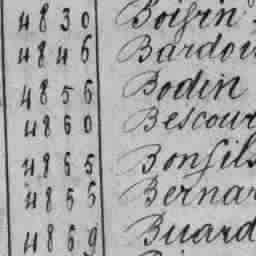 4830 Boisin
4846 Bardou
4856 Bodin
4860 Bescour
4865 Bonfils
4855 Bernar
4869 Buard